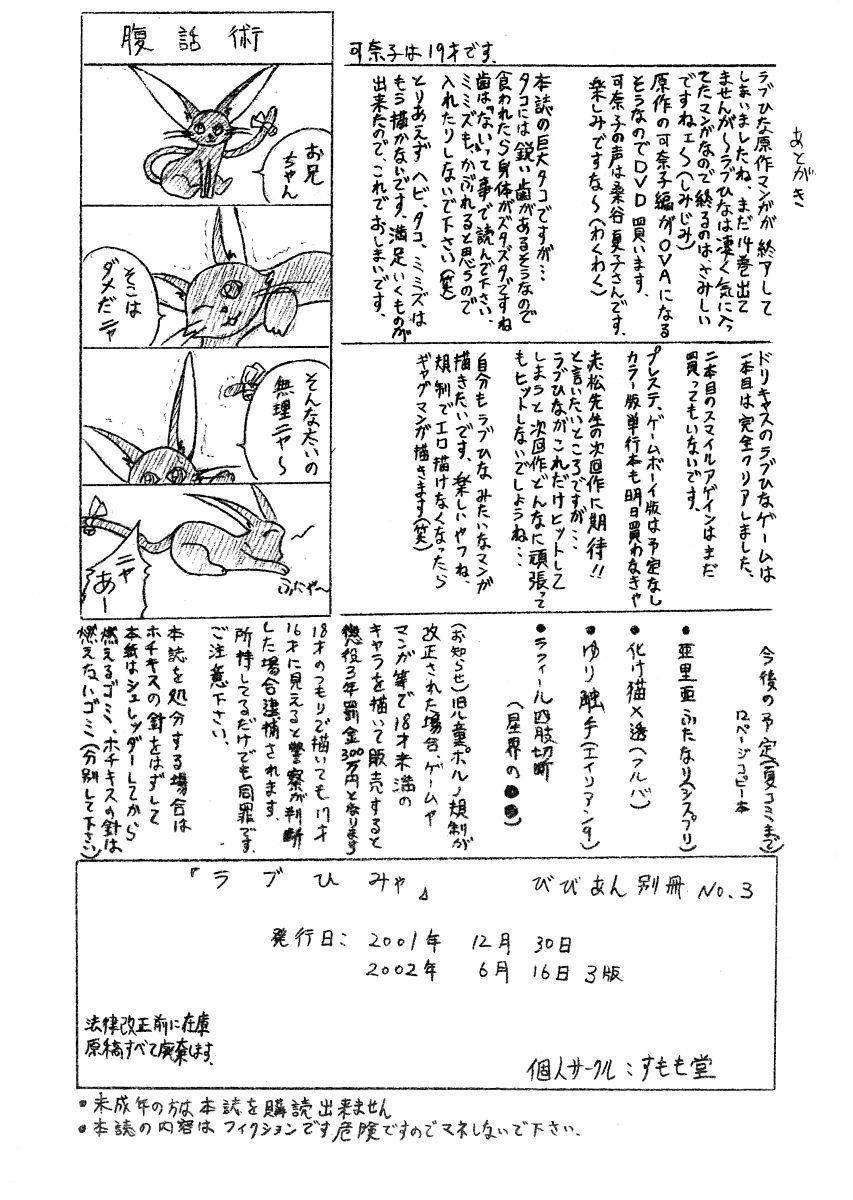 あとがき
ラブひな原作マンガが終アして
しまいましたね、まだ14巻出て
ませんが〜ラブひなは凄く気に入っ
てたマンガなので終るのは、さみしい
ですねェ〜(しみじみ)
原作の可奈子編がOVAになる
そうなのでDVD買います、
可奈子の声は桑谷夏子さんです、
楽しみですな〜(わくわく)
本誌の巨大タコですが…
タコには鋭い歯があるそうなので
食われたら身体がズタズタですね
歯は「ない」って事で読んで下さい、
ミミズも、かぶれると思うので
入れたりしないで下さい(笑)
とりあえずヘビ、タコ、ミミズは
もう描かないです、満足いくものが
出来たので、これでおしまいです、
可奈子は19才です、
腹話術
お兄
ちゃん
そこは
ダメだニャ
そんな太いの
無理ニャ〜
ニャ
あー
ふにゃ〜
ドリキャスのラブひなゲームは
一本目は完全クリアしました、
二本目のスマイルアゲインはまだ
買ってもいないです、
プレステ、ゲームボーイ版は予定なし
カラー版単行本も明日買わなきゃ
赤松先生の次回作に期待!!
と言いたいところですが…
ラブひながこれだけヒットして
しまうと次回作どんなに頑張って
もヒットしないでしょうね…
自分もラブひなみたいなマンガ
描きたいです、楽しいやつね、
規制でエロ描けなくなったら
ギャグマンが描きます(笑)
今後の予定(夏コミまで)
12ページコピー本
●亜里亜ふたなり(シスプリ)
●化け猫×透(フルバ)
●ゆり触手(エイリアン9)
●ラフィール四肢切断
(星界の●●)
(お知らせ)児童ポルノ規制が
改正された場合、ゲームや
マンガ等で18才未満の
キャラを描いて販売すると
懲役3年罰金300万円となります
18才のつもりで描いても17才
16才に見えると警察が判断
した場合逮捕されます、
所持してるだけでも同罪です、
ご注意下さい、
本誌を処分する場合は
ホチキスの針をはずして
本紙はシュレッダーしてから
燃えるゴミ、ホチキスの針は
燃えないゴミ(分別して下さい)
『ラブひみゃ』 びびあん別冊 No.3
発行日: 2001年 12月 30日
2002年 6月 16日 3版
法律改正前に在庫
原稿すべて廃棄します、
個人サークル:すもも堂
●未成年の方は本誌を購読出来ません
●本誌の内容はフィクションです危険ですのでマネしないで下さい、